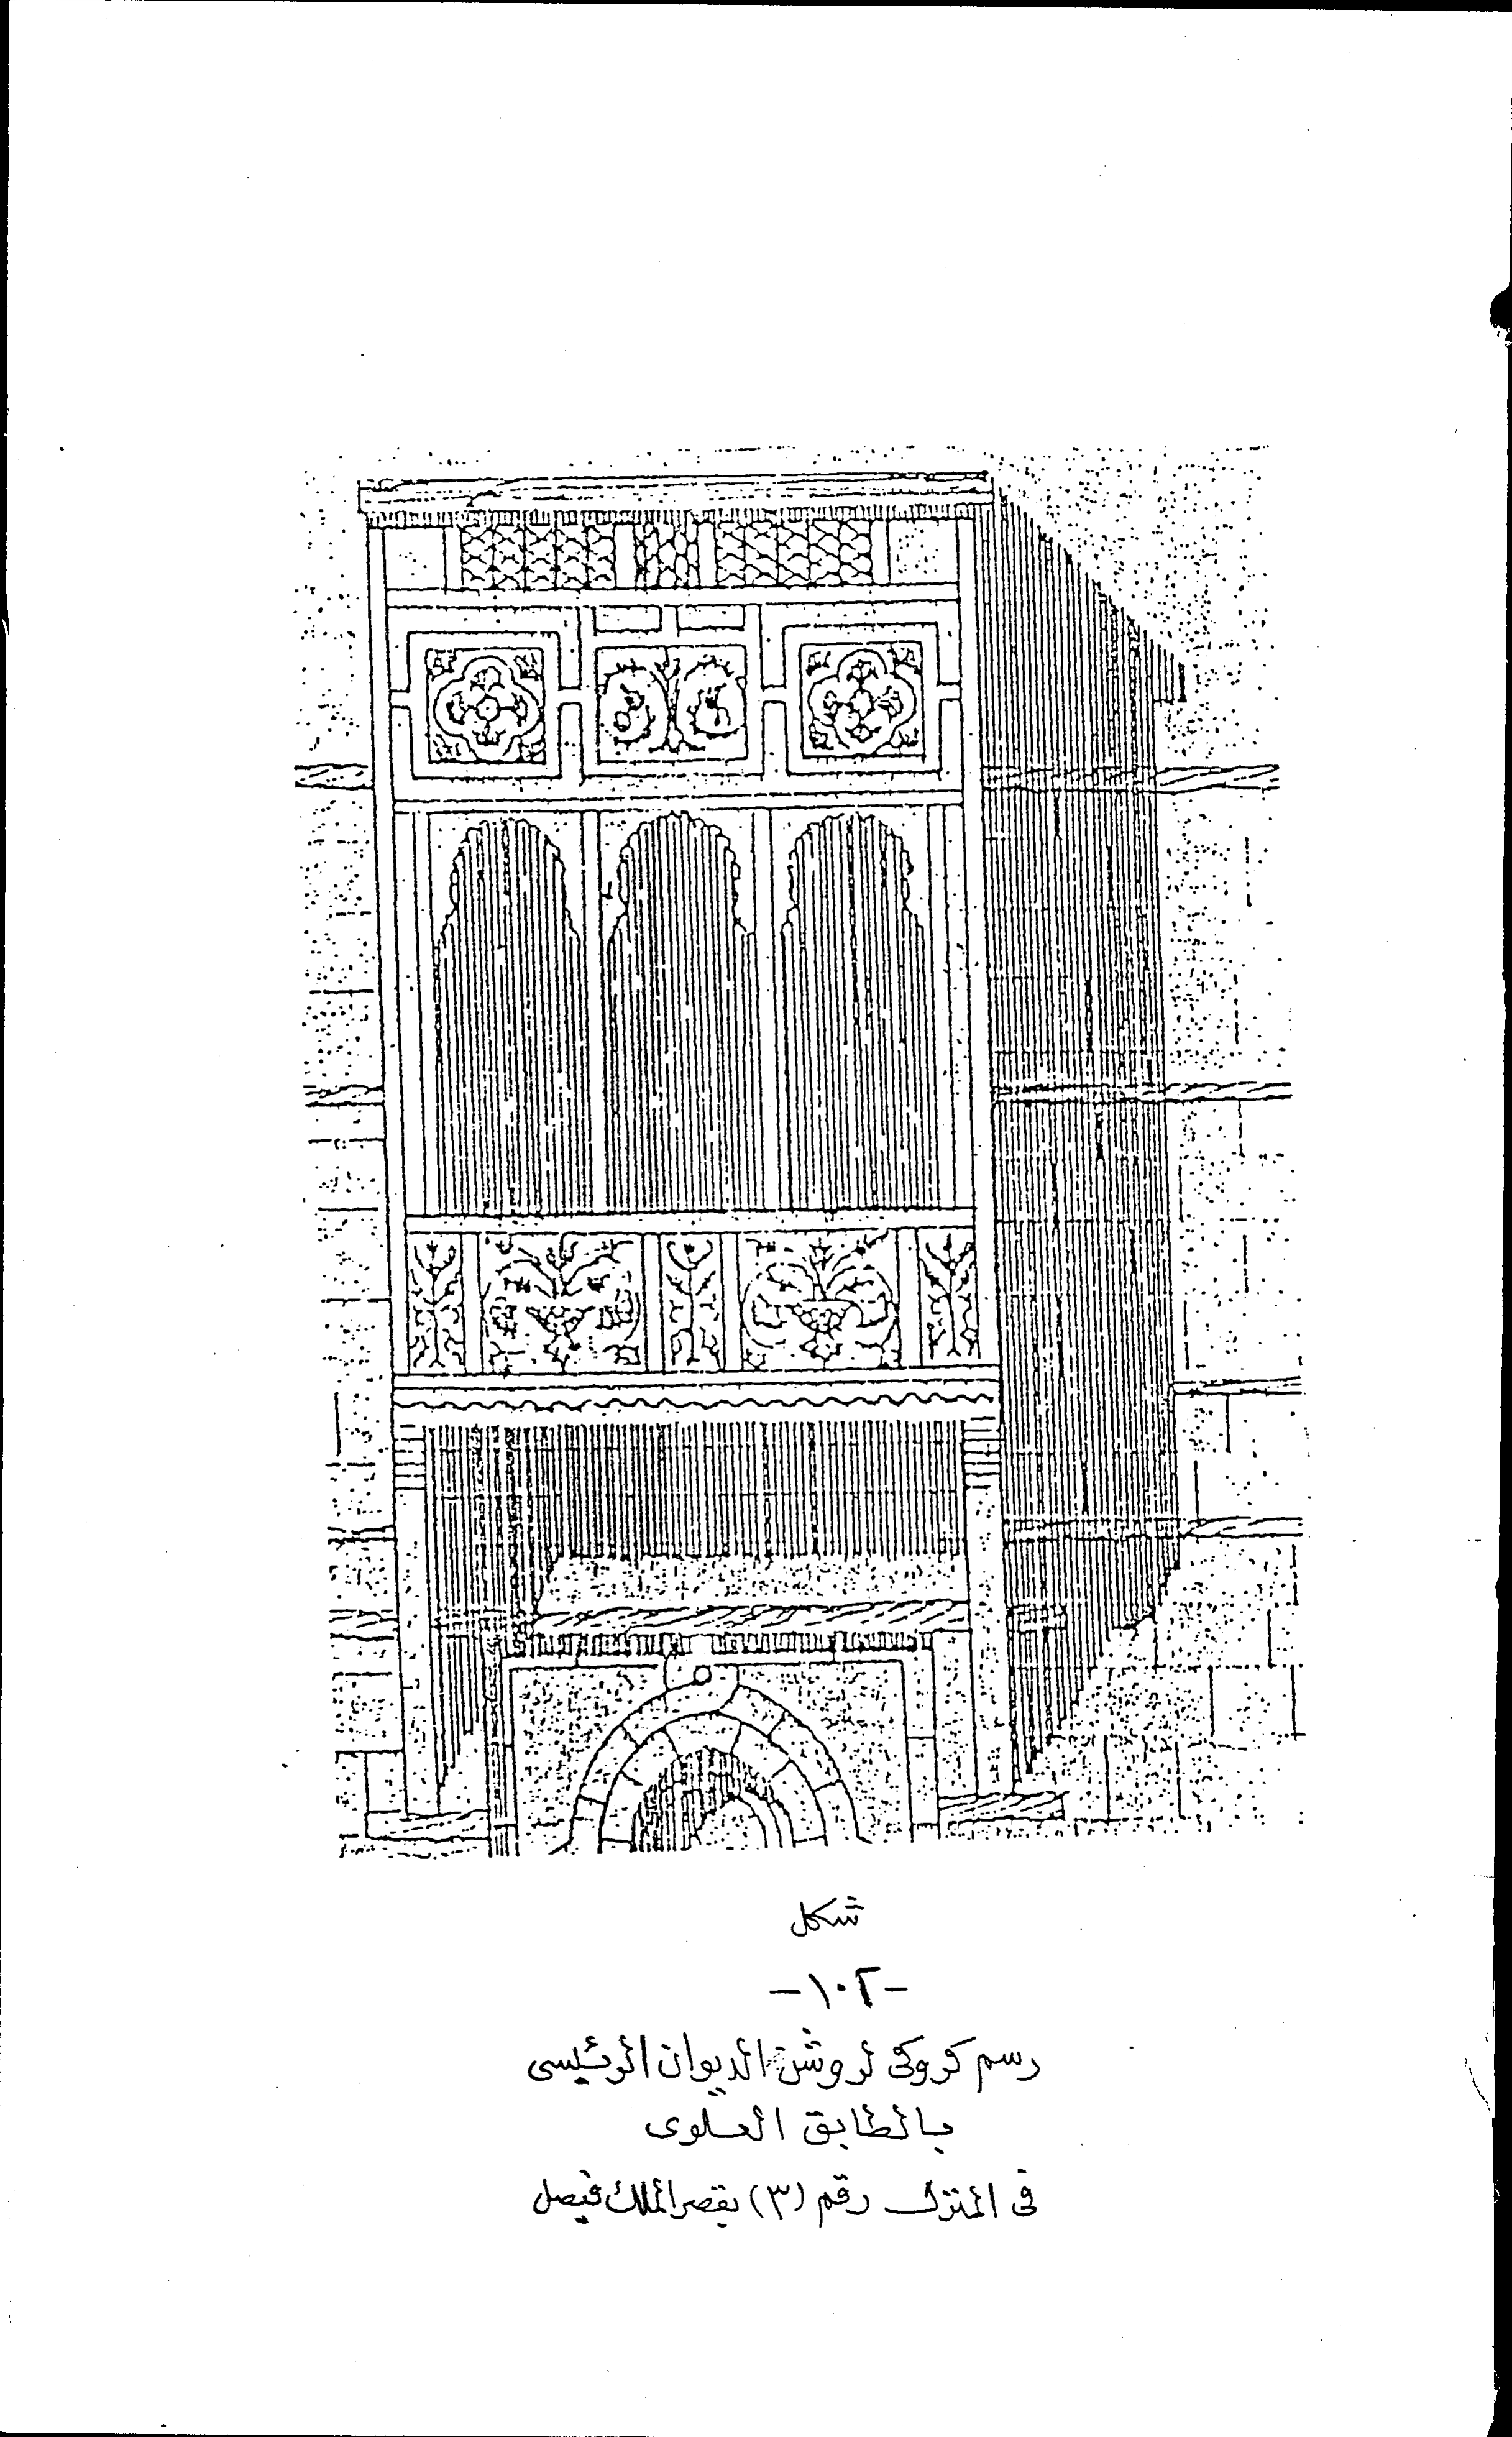 شكل
-١٠٢-
رسم كروكى لروشن الديوان الرئيسى
بالطابق العلوى
فى المنزل رقم (٣) بقصر الملك فيصل